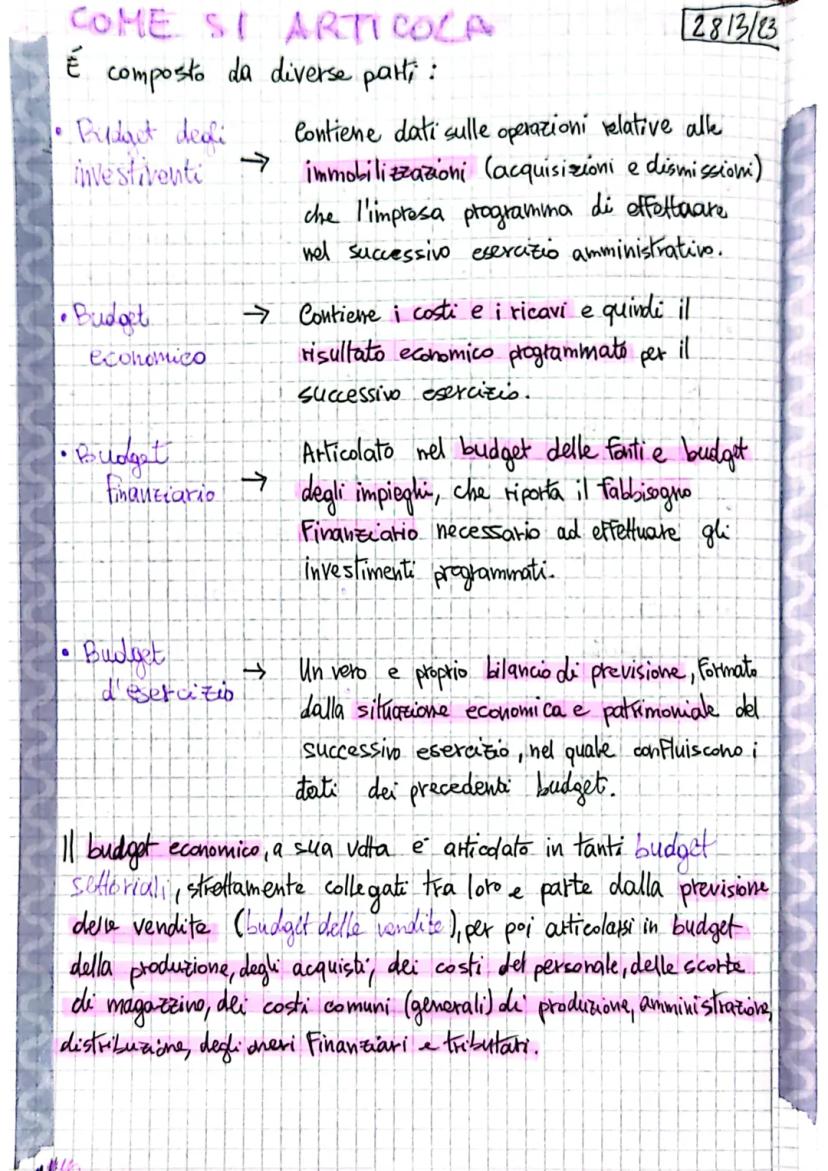 COME SI ARTICOLA
28/3/23
É composto da diverse parti:
• Budget degli investimenti → Contiene dati sulle operazioni relative alle
immobilizzazioni (acquisizioni e dismissioni)
che l'impresa programma di effettuare
nel successivo esercizio amministrativo.
• Budget economico → Contiene i costi e i ricavi e quindi il
risultato economico programmato per il
successivo esercizio.
• Budget finanziario → Articolato nel budget delle fonti e budget
degli impieghi, che riporta il fabbisogno
Finanziario necessario ad effettuare gli
investimenti programmati.
• Budget d'esercizio → Un vero e proprio bilancio di previsione, formato
dalla situazione economica e patrimoniale del
successivo esercizio, nel quale confluiscono i
dati dei precedenti budget.
Il budget economico, a sua volta é articolato in tanti budget
settoriali, strettamente collegati tra loro e parte dalla previsione
delle vendite (budget delle vendite), per poi articolarsi in budget
della produzione, degli acquisti, dei costi del personale, delle scorte
di magazzino, dei costi comuni (generali) di produzione, amministrazione,
distribuzione, degli oneri Finanziari e tributari.